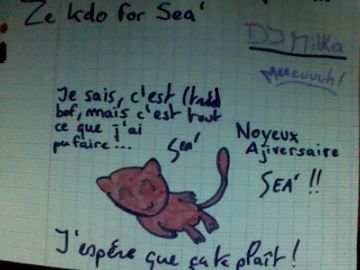 Ze kdo for Sea'
DJ Milka
Meeeuuuh!
Je sais, c'est (très)
bof, mais c'est tout
ce que j'ai
pu faire...
Sea'
Noyeux
Ajiversaire
SEA' !!
J'espère que ça te plaît !